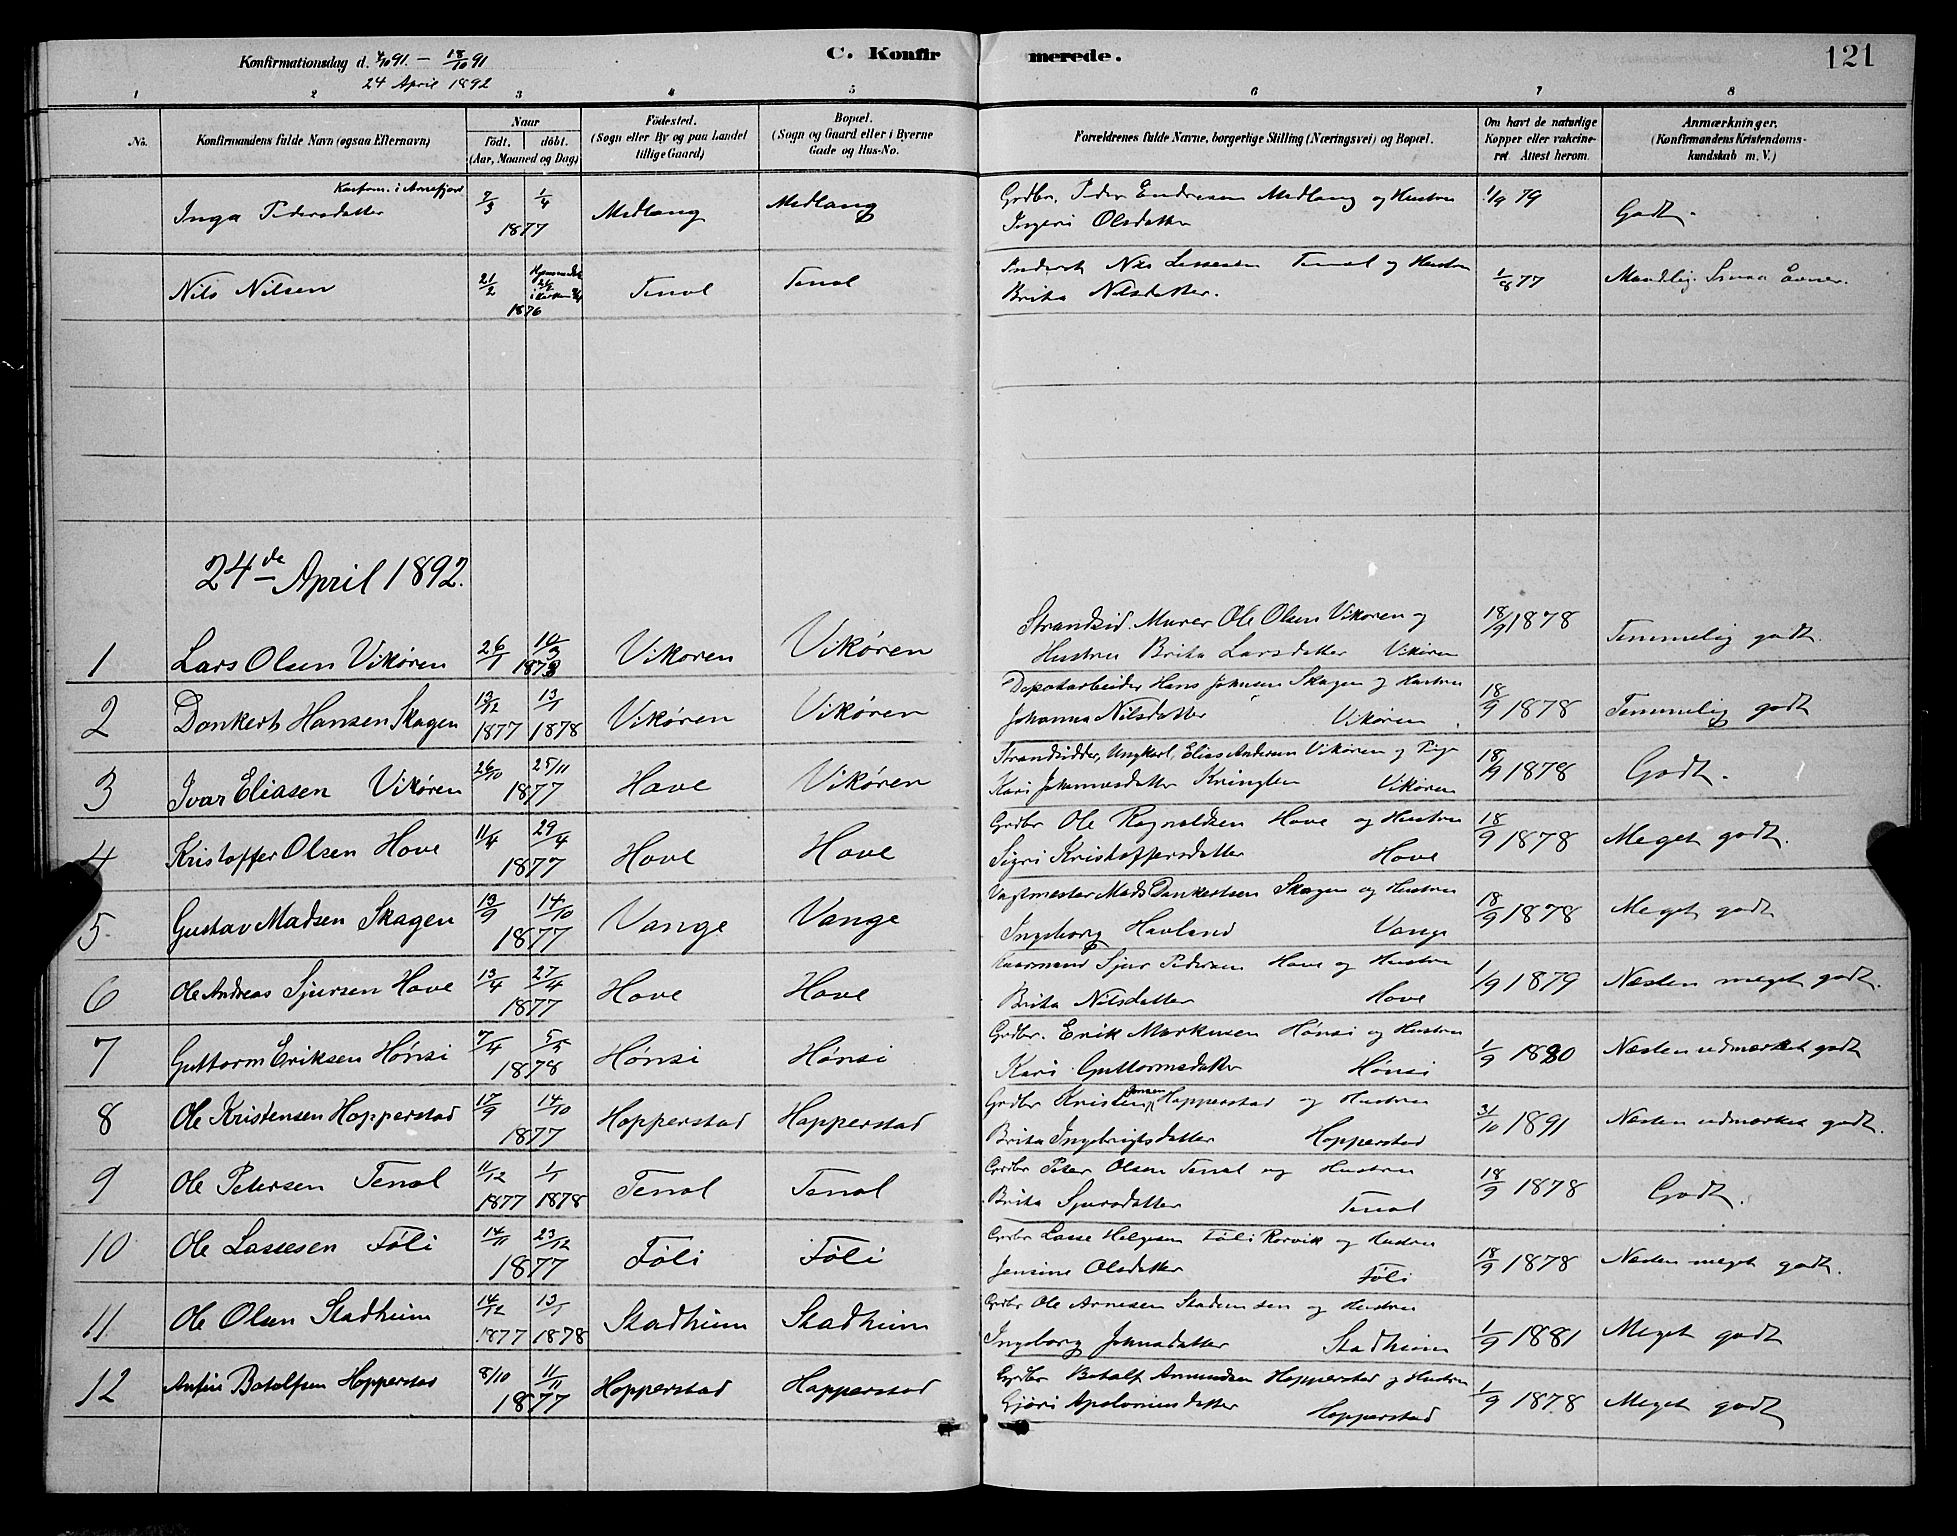 Konfirmationsdag d. 4/10 91. — 18/10 91
24 April 1892
C. Konfirmerede.
121
1 2 3 4 5 6 7 8
No.
Konfirmandens fulde Navn (ogsaa Efternavn)
Naar
födt. döbt.
(Aar, Maaned og Dag)
Födested.
(Sogn eller By og paa Landet
tillige Gaard)
Bopæl.
(Sogn og Gaard eller i Byerne
Gade og Hus-No.
Forældrenes fulde Navne, borgerlige Stilling (Næringsvei) og Bopæl.
Om havt de naturlige
Kopper eller vakcine-
ret. Attest herom.
Anmærkninger.
(Konfirmandens Kristendoms-
kundskab m. V.)
Konfirm. i Arnefjord
Inga Pedersdatter 7/3 1/4 1877 Medlang Medlang Grdbr. Peder Endresen Medlang og Hustru
Ingeri Olsdatter 1/9 79 Godt.
Nils Nilsen 21/2 1876 Tenol Tenol Nils Lassesen Tenol og Hustru
Brita Nilsdatter. 1/8 77 Maadelig. Smaa Evner.
24de April 1892.
1 Lars Olsen Vikøren 26/1 14/3 1878 Vikoren Vikøren Strandsid. Murer Ole Olsen Vikoren og
Hustru Brita Larsdatter Vikøren 18/9 1878 Temmelig godt.
2 Dankert Hansen Skagen 13/12 1877 13/1 1878 Vikøren Vikøren Depotarbeider Hans Johnsen Skagen og Hustru
Johanna Nilsdatter Vikøren 18/9 1878 Temmelig godt
3 Ivar Eliasen Vikøren 26/10 25/11 1877 Hove Vikøren Strandsidder, Ungkarl, Elias Andersen Vikøren og Pige
Kari Johannesdatter Kringlen Vikøren 18/9 1878 Godt.
4 Kristoffer Olsen Hove 11/4 29/4 1877 Hove Hove Grdbr Ole Ragnvaldsen Hove og Hustru
Sigri Kristoffersdatter Hove 18/9 1878 Meget godt.
5. Gustav Madsen Skagen 13/9 14/10 1877 Vange Vange Vagtmester Mads Dankertsen Skagen og Hustru
Ingeborg Havland Vange 18/9 1878 Meget godt
6 Ole Andreas Sjursen Hove 13/4 27/4 1877 Hove Hove Kaarmand Sjur Pedersen Hove og Hustru
Brita Nilsdatter Hove 1/9 1879 Næsten meget godt.
7 Guttorm Eriksen Hønsi 7/4 5/5 1878 Hønsi Hønsi Grdbr. Erik Markusen Hønsi og Hustru
Kari Guttormsdatter Hønsi 1/9 1880 Næsten udmærket godt
8 Ole Kristensen Hopperstad 17/9 14/10 1877 Hopperstad Hopperstad Grdbr Kristen Jensen Hopperstad og Hustru
Brita Ingebrigtsdatter Hopperstad 31/10 1891 Næsten udmærket godt.
9 Ole Petersen Tenol 11/12 1877 1/1 1878 Tenol Tenol Grdbr Peter Olsen Tenol og Hustru
Brita Sjursdatter Tenol 18/9 1878 Godt.
10 Ole Lassesen Føli 14/11 23/12 1877 Føli Føli Grdbr Lasse Helgesen Føli Rørvik og Hustru
Jensine Olsdatter Føli 18/9 1878 Næsten meget godt.
11 Ole Olsen Stadheim 14/12 1877 13/1 1878 Stadheim Stadheim Grdbr Ole Arnesen og Hustru
Ingeborg Johnsdatter Stadheim 1/9 1881 Meget godt
12 Anfin Botolfsen Hopperstad 8/10 11/11 1877 Hopperstad Hopperstad Grdbr Botolf Amundsen Hopperstad og Hustru
Gjøri Apoloniusdatter Hopperstad 1/9 1878 Meget godt